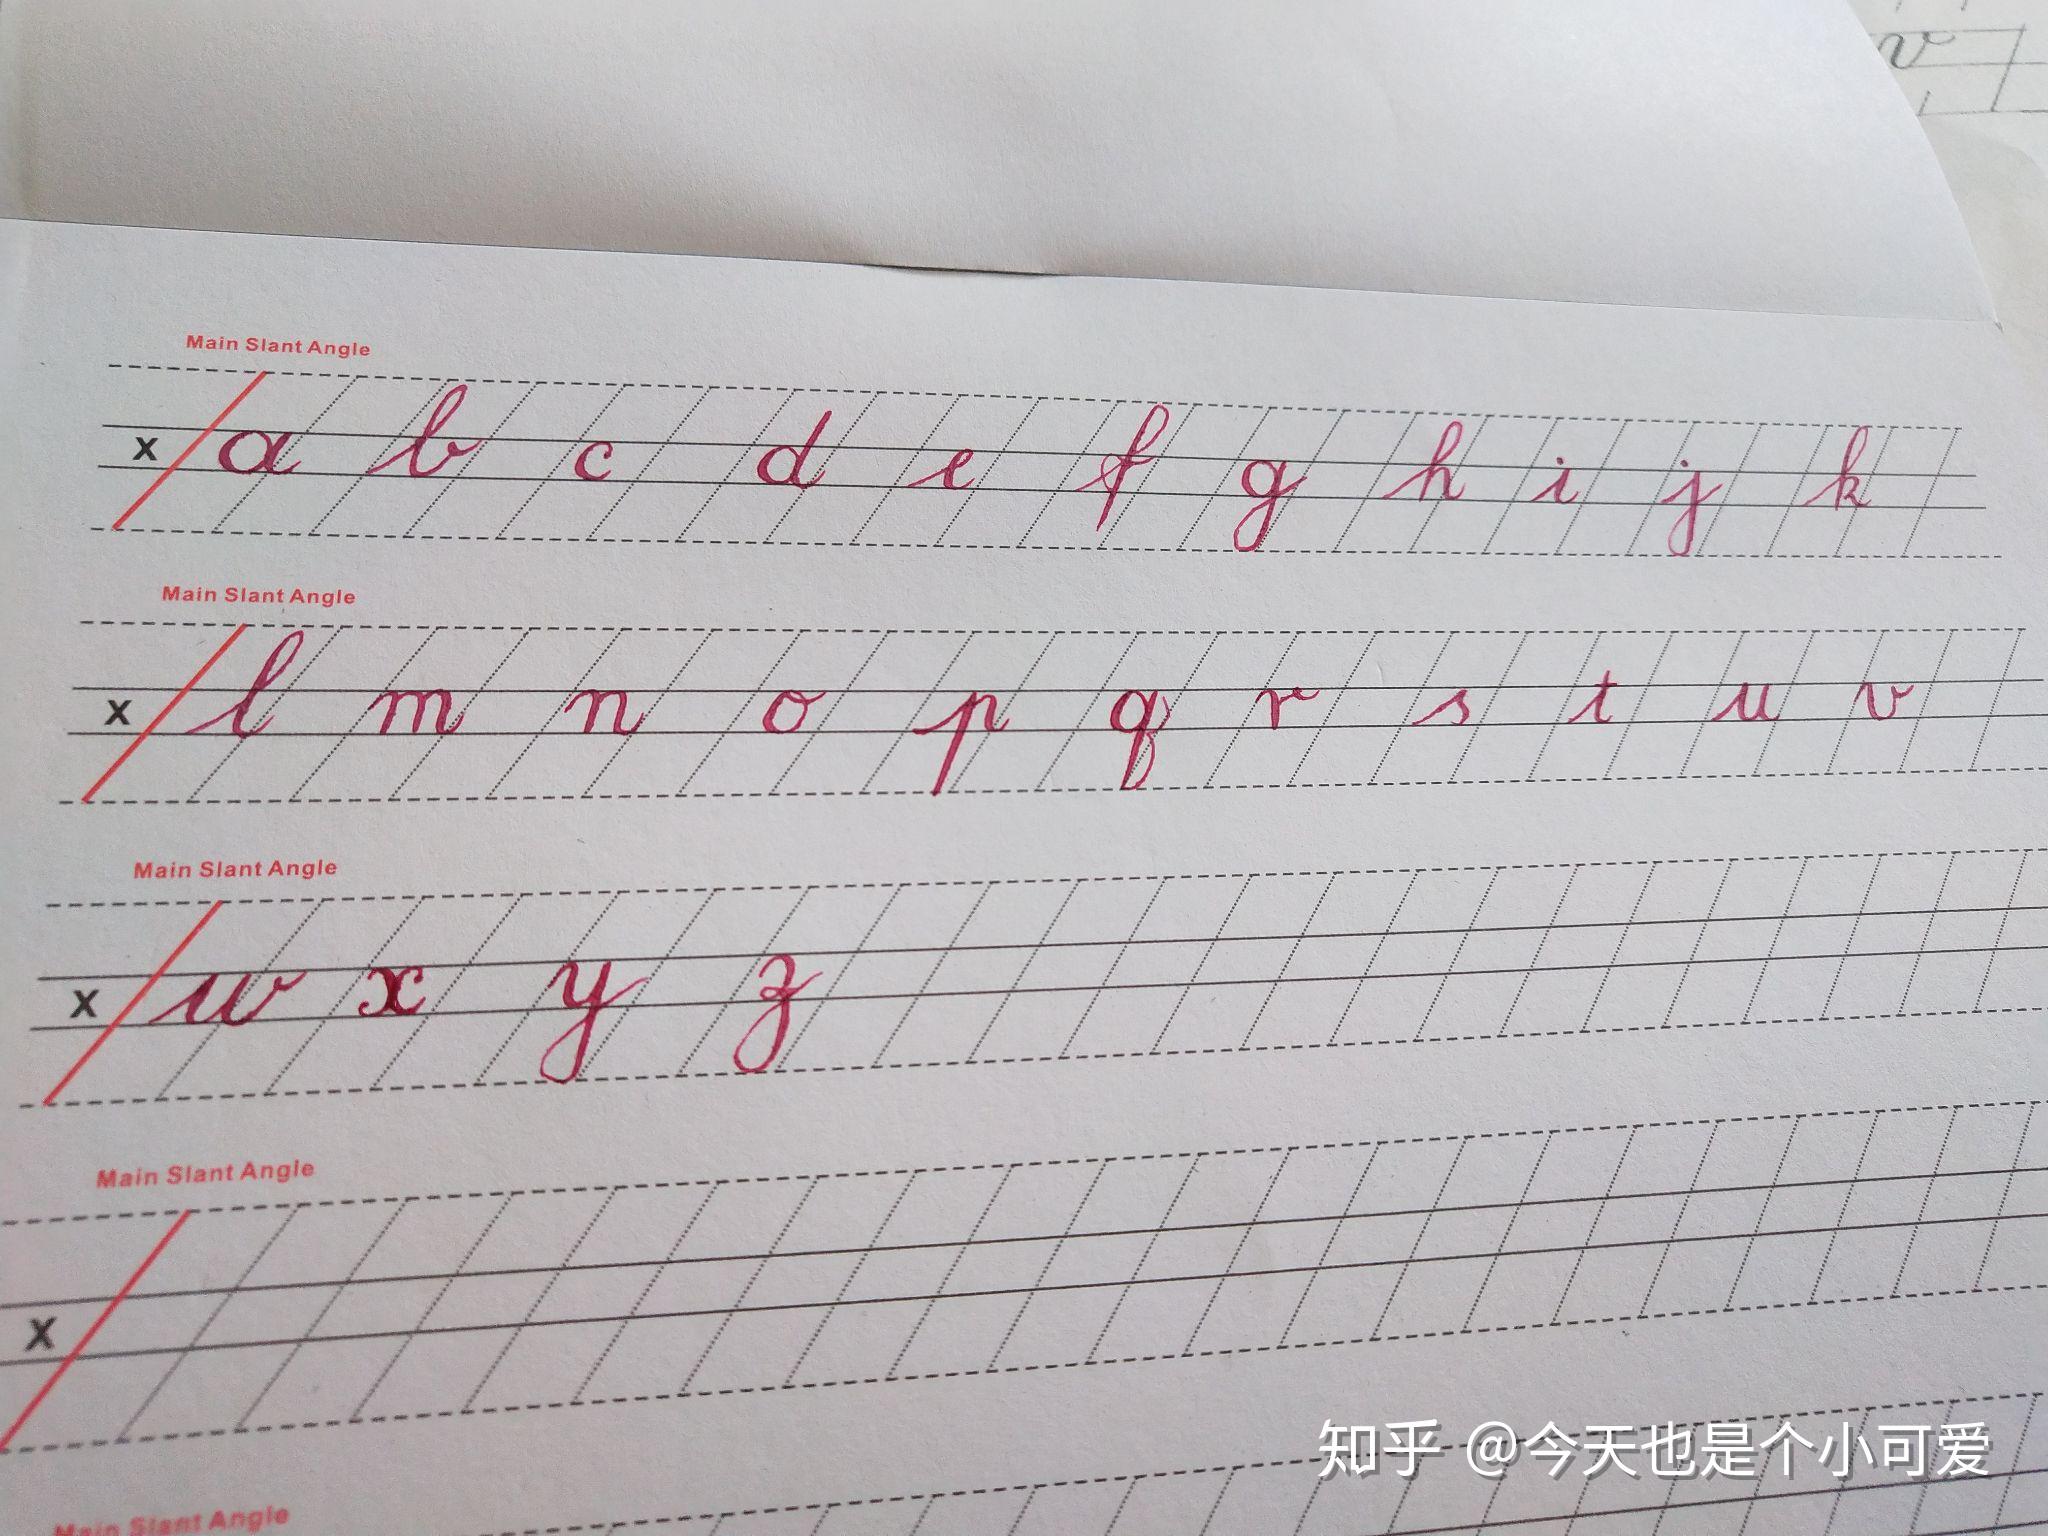 v
Main Slant Angle
x a b c d e f g h i j k
Main Slant Angle
x l m n o p q r s t u v
Main Slant Angle
x w x y z
Main Slant Angle
x
知乎 @今天也是个小可爱
Main Slant Angle